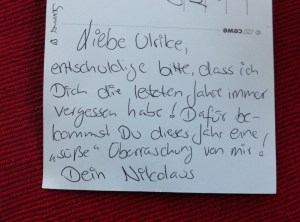 © cewe
Liebe Ulrike,
entschuldige bitte, dass ich
Dich die letzten Jahre immer
vergessen habe! Dafür be-
kommst Du dieses Jahr eine
„süße" Überraschung von mir!
Dein Nikolaus